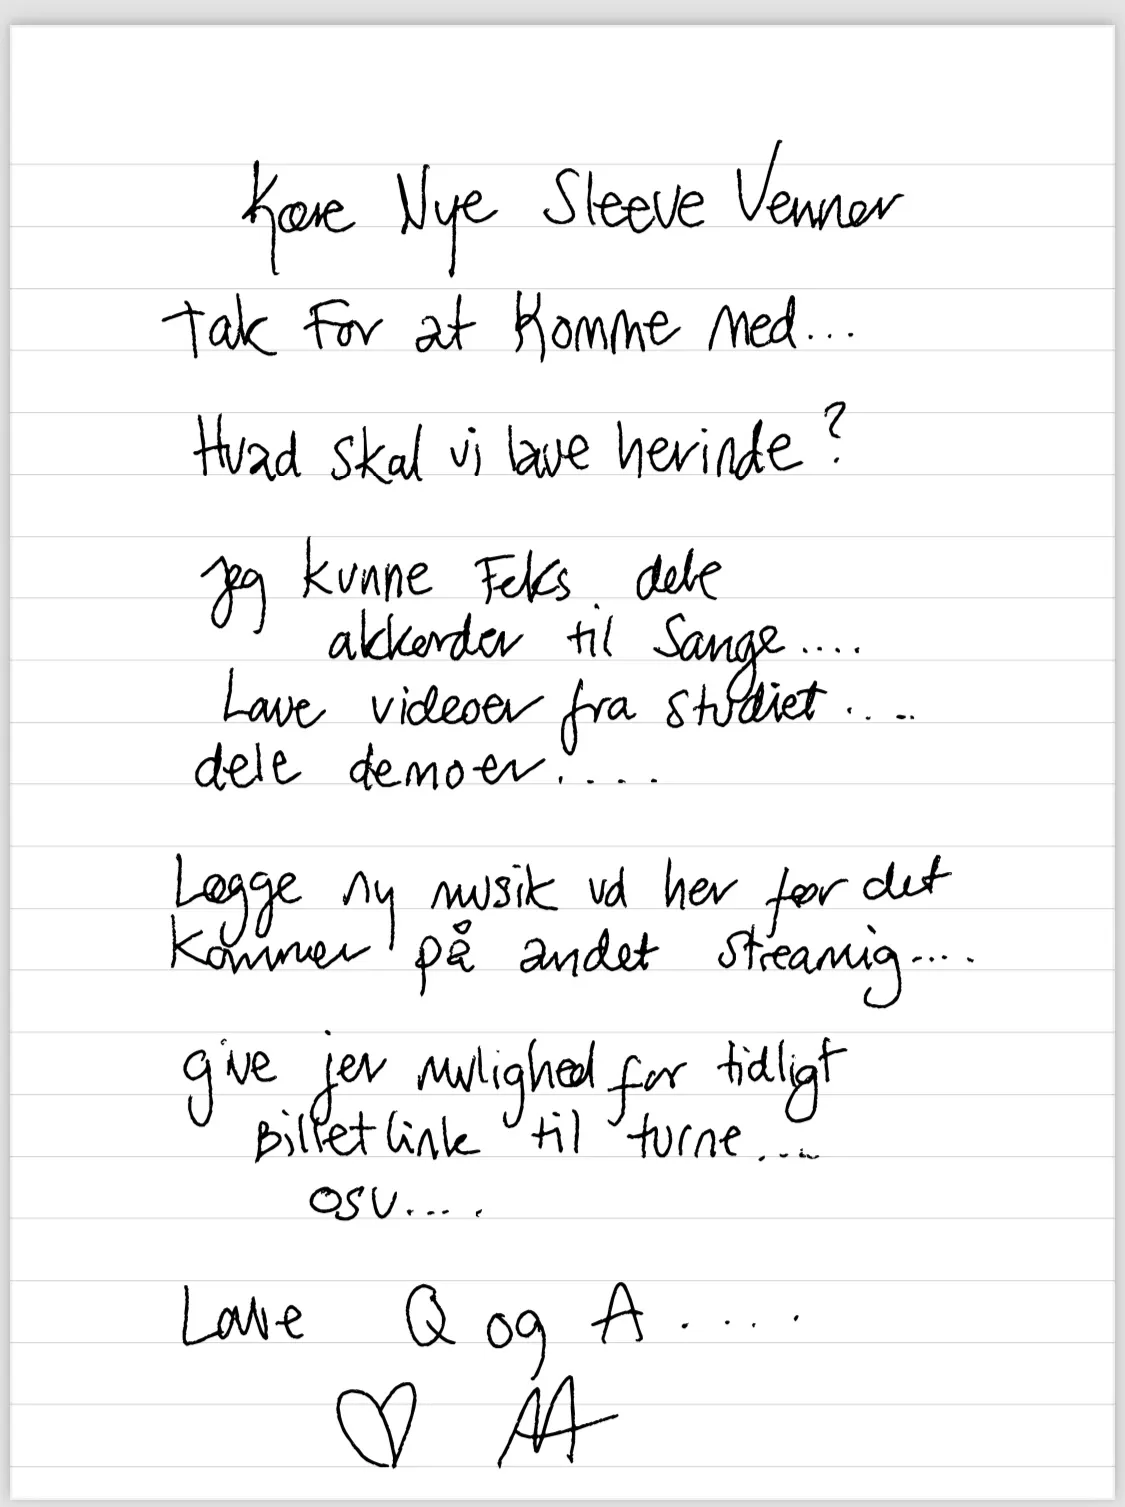 Kære Nye Sleeve Venner
Tak For at Komme med...
Hvad skal vi lave herinde?
Jeg kunne Feks. dele
akkorder til Sange....
Lave videoer fra studiet....
dele demoer.....
Lægge ny musik ud her før det
Kommer på andet streamig....
give jer mulighed for tidligt
Billetlink til turne....
osv....
Lave Q og A....
♡ AA